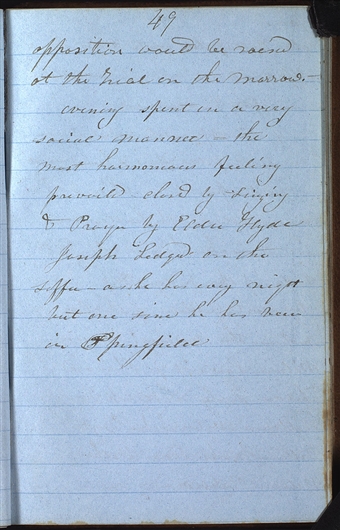 49
opposition would be raised
at the trial on the morrow. -
evening spent in a very
social manner - the
most harmonious feeling
prevaild closed by singing
& Prayer by Elder Hyde
Joseph Lodged on the
soffa - as he has evry night
but one since he has been
in Springfield